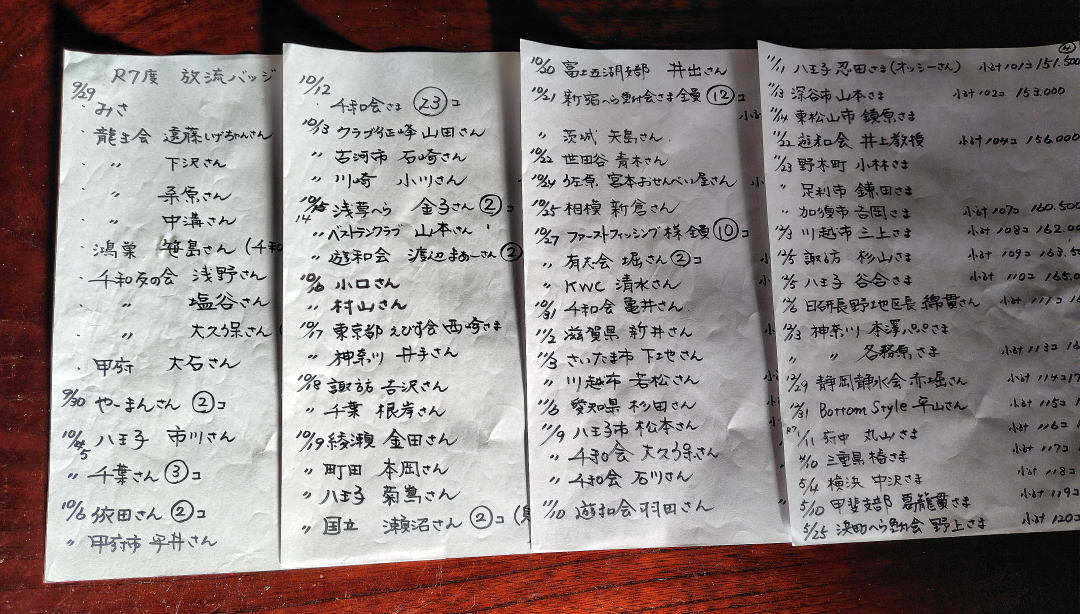 R7度 放流バッジ
9/29
・みさ
龍王会 遠藤しげちゃんさん
・ 〃 下沢さん
・ 〃 桑原さん
・ 〃 中溝さん
・鴻巣 笹島さん(千和
・千和友の会 浅野さん
・ 〃 塩谷さん
・ 〃 大久保さん
・甲府 大石さん
9/30 やーまんさん ②コ
10/5 八王子 市川さん
〃 千葉さん ③コ
10/6 依田さん ②コ
〃 甲府市 平井さん
10/12
千和会さま ㉓コ
10/13 クラブ征峰 山田さん
〃 古河市 石崎さん
〃 川崎 小川さん
10/14 浅草へら 金子さん ②コ
〃 ベストランクラブ 山本さん
〃 遊和会 渡辺まあーさん ②
10/16 小口さん
〃 村山さん
10/17 東京都 えびす会 西崎さま
〃 神奈川 井手さん
10/18 諏訪 吉沢さん
〃 千葉 根岸さん
10/19 綾瀬 金田さん
〃 町田 本岡さん
〃 八王子 菊嶌さん
〃 国立 瀬沼さん ②コ
10/20 富士五湖支部 井出さん
10/21 新宿へら鮒会さま全員 ⑫コ
〃 茨城 矢島さん
10/22 世田谷 青木さん
10/24 佐原 宮本おせんべい屋さん
10/25 相模 新倉さん
10/27 ファーストフィッシング様 全員 ⑩コ
〃 有志会 堀さん ②コ
〃 KWC 清水さん
10/31 千和会 亀井さん
11/2 滋賀県 新井さん
11/3 さいたま市 下地さん
〃 川越市 若松さん
11/6 愛知県 杉田さん
11/9 八王子市 松本さん
〃 千和会 大久保さん
〃 千和会 石川さん
11/10 遊和会 羽田さん
④
11/11 八王子 忍田さま(オッシーさん) 小計101コ 151.500
11/13 深谷市 山本さま 小計102コ 153.000
11/14 東松山市 鏡原さま
11/22 遊和会 井上教授 小計104コ 156.000
11/23 野木町 小林さま
〃 足利市 鎌田さま
〃 加須市 吉岡さま 小計107コ 160.500
12/3 川越市 三上さま 小計108コ 162.00
12/5 諏訪 杉山さま 小計109コ 163.5
12/5 八王子 谷合さま 小計110コ 165.0
12/6 日研長野地区長 綿貫さん 小計111コ 16
12/13 神奈川 本澤パパさま
〃 〃 各務原さま 小計113コ 16
12/29 静岡静水会 赤堀さん 小計114コ 17
12/31 Bottom Style 平山さん 小計115コ 1
R7
1/11 府中 丸山さま 小計116コ
4/10 三重県 椿さま 小計117コ
5/4 横浜 中沢さま 小計118コ
5/10 甲斐支部 葛籠貫さま 小計119コ
5/25 浜町へら鮒会 野上さま 小計120コ